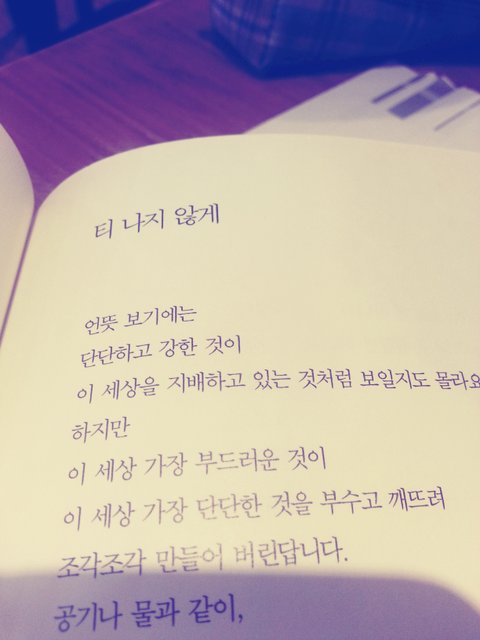 티 나지 않게
언뜻 보기에는
단단하고 강한 것이
이 세상을 지배하고 있는 것처럼 보일지도 몰라요
하지만
이 세상 가장 부드러운 것이
이 세상 가장 단단한 것을 부수고 깨뜨려
조각조각 만들어 버린답니다.
공기나 물과 같이,